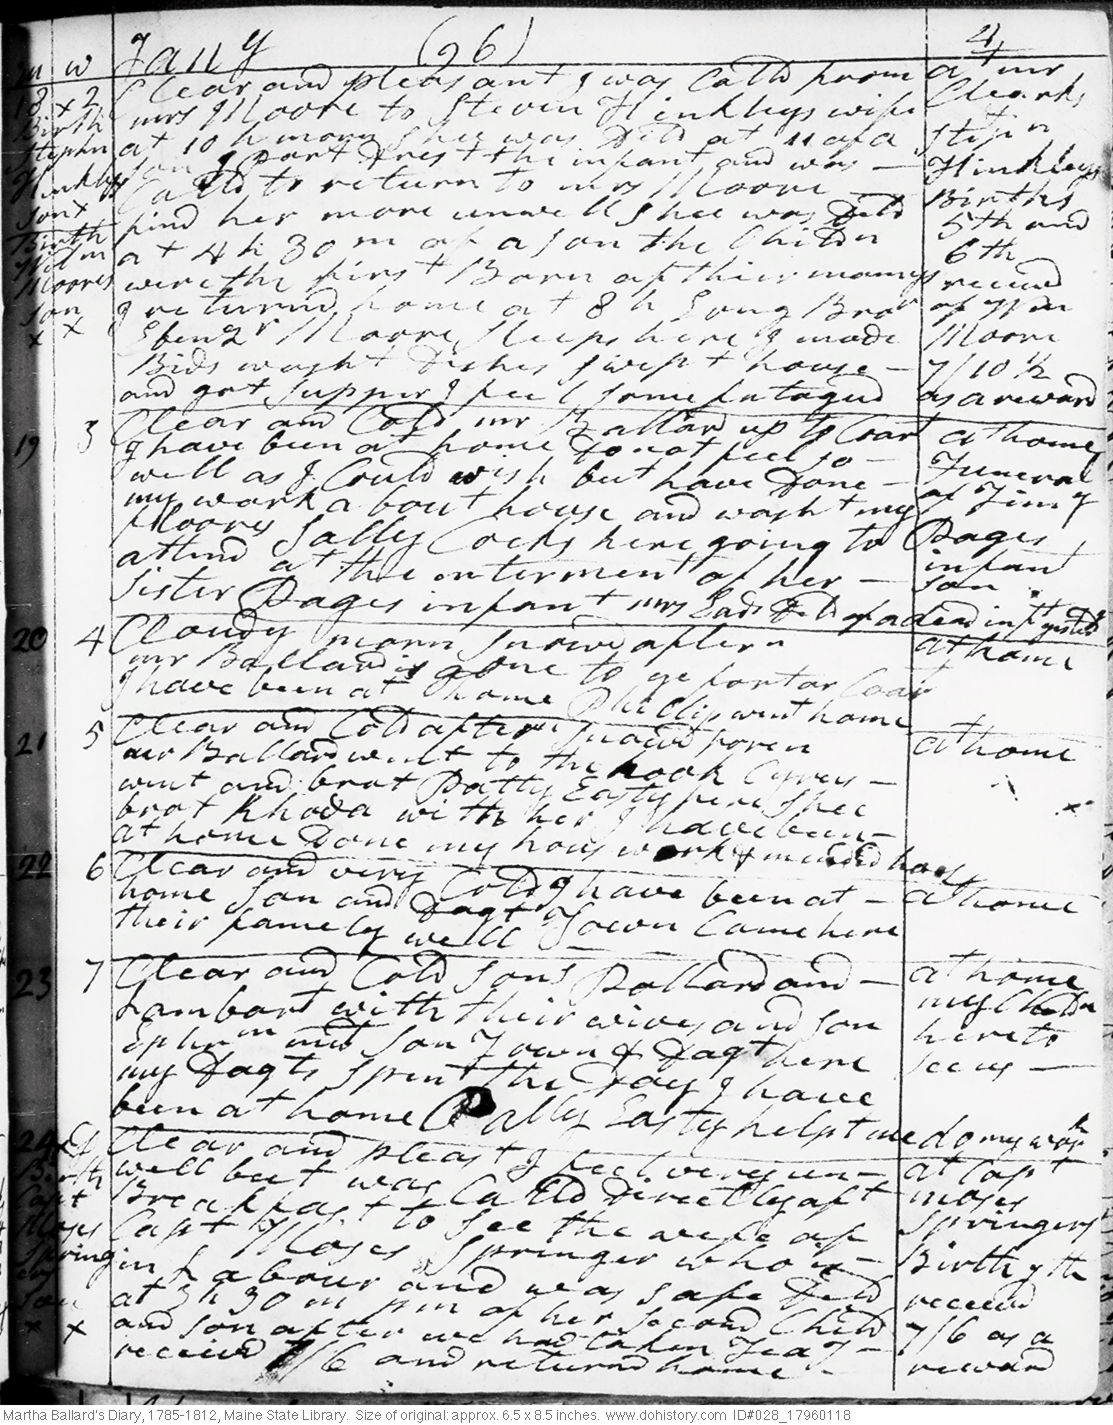 Jany (96) 4
m w
18 x 2 Clear and pleasant I was Calld from at mr
Birth mrs Moore to Steven Hinkleys wife Clearks
Stephn at 10 h morn shee was Deld at 11 of a Stepn
Hinkleys son I Part drest the infant and was — Hinkleys
son x Calld to return to mrs Moore — Births
Birth find her more unwell shee was Deld 5th and
at 4 h 30 m of a son the Childn 6th
Moores were the first Born of their mamys received
son I returned home at 8 h Evng Bror of Wm
x x Ebenzr Moore Sleeps here I made Moore
Beds washt Dishes swept house — 7/10½
and got supper I feel some fataged as a reward
19 3 Clear and Cold mr Ballard up to Coart at home
I have been at home do not feel so — Funeral
well as I Could wish but have Done — of Timoy
my work about house and washt my Pages
floors Sally Cocks here going to infant
attend at the interment of her — son
Sister Pages infant mrs Eads Deld of a dead inft yesterd
20 4 Cloudy morn snowd aftern at home
mr Ballard is gone to ye for tar Coar
I have been at home Phillip went home
21 5 Clear and Cold aftern snowd foren at home
mr Ballard went to the hook Cyrus —
went and brot Patty Easty here shee
brot Rhoda with her I have been —
at home Done my hous work & mended hoes
22 6 Clear and very Cold I have been at — at home
home son and Dagt Town Came here
their famely well
23 7 Clear and Cold sons Pollard and — at home
Lambart with their wives and son my Childn
Ephm and son Town & Dagt here here to
my Dagts spent the Day I have see us —
been at home Pally Easty helpt me do my work
24 Clear and pleast I feel very un— at Capt
Birth well but was Calld Directly aft moses
Capt Breakfast to see the wife of Springers
Moses Capt Moses Springer who is — Birth 7th
Springers in Labour and was safe Deld received
son at 3 h 30 m pm of her second Child 7/6 as a
x x and son after we had taken Tea I — reward
received 7/6 and returnd home —
Martha Ballard's Diary, 1785-1812, Maine State Library. Size of original: approx. 6.5 x 8.5 inches. www.dohistory.com ID#028_17960118